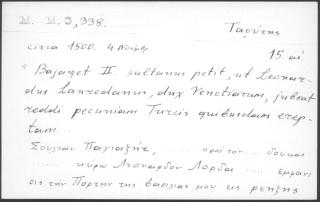 M. M. 3,338.
Ταρύτης
circa 1500. 4 Νοεμβρ.
15. αἰ
"Bajazet II. sultanus petit, ut Leonar-
dus Lauredanus, dux Venetiarum, jubeat
reddi pecuniam Turcis quibusdam erep-
tam...
Σουλτὰν Παγιαζήτ, ...... πρὸς τον .... δουκαι
...... κύρω Λεονάρδον Λορδα... ...... εμφαν
εις τὴν Πόρτην της βασιλιας μου κς